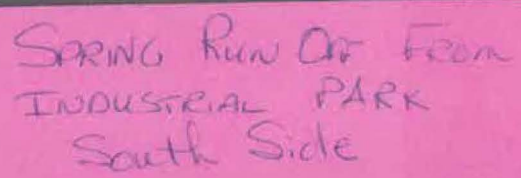 SPRING RUN OFF FROM
INDUSTRIAL PARK
South Side